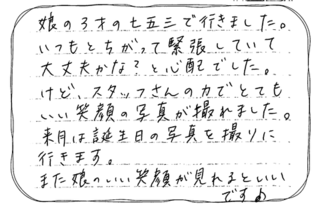 娘の3才の七五三で行きました。
いつもとちがって緊張していて
大丈夫かな?と心配でした。
けど、スタッフさんの力でとても
いい笑顔の写真が撮れました。
来月は誕生日の写真を撮りに
行きます。
また娘のいい笑顔が見れるといい
です♪